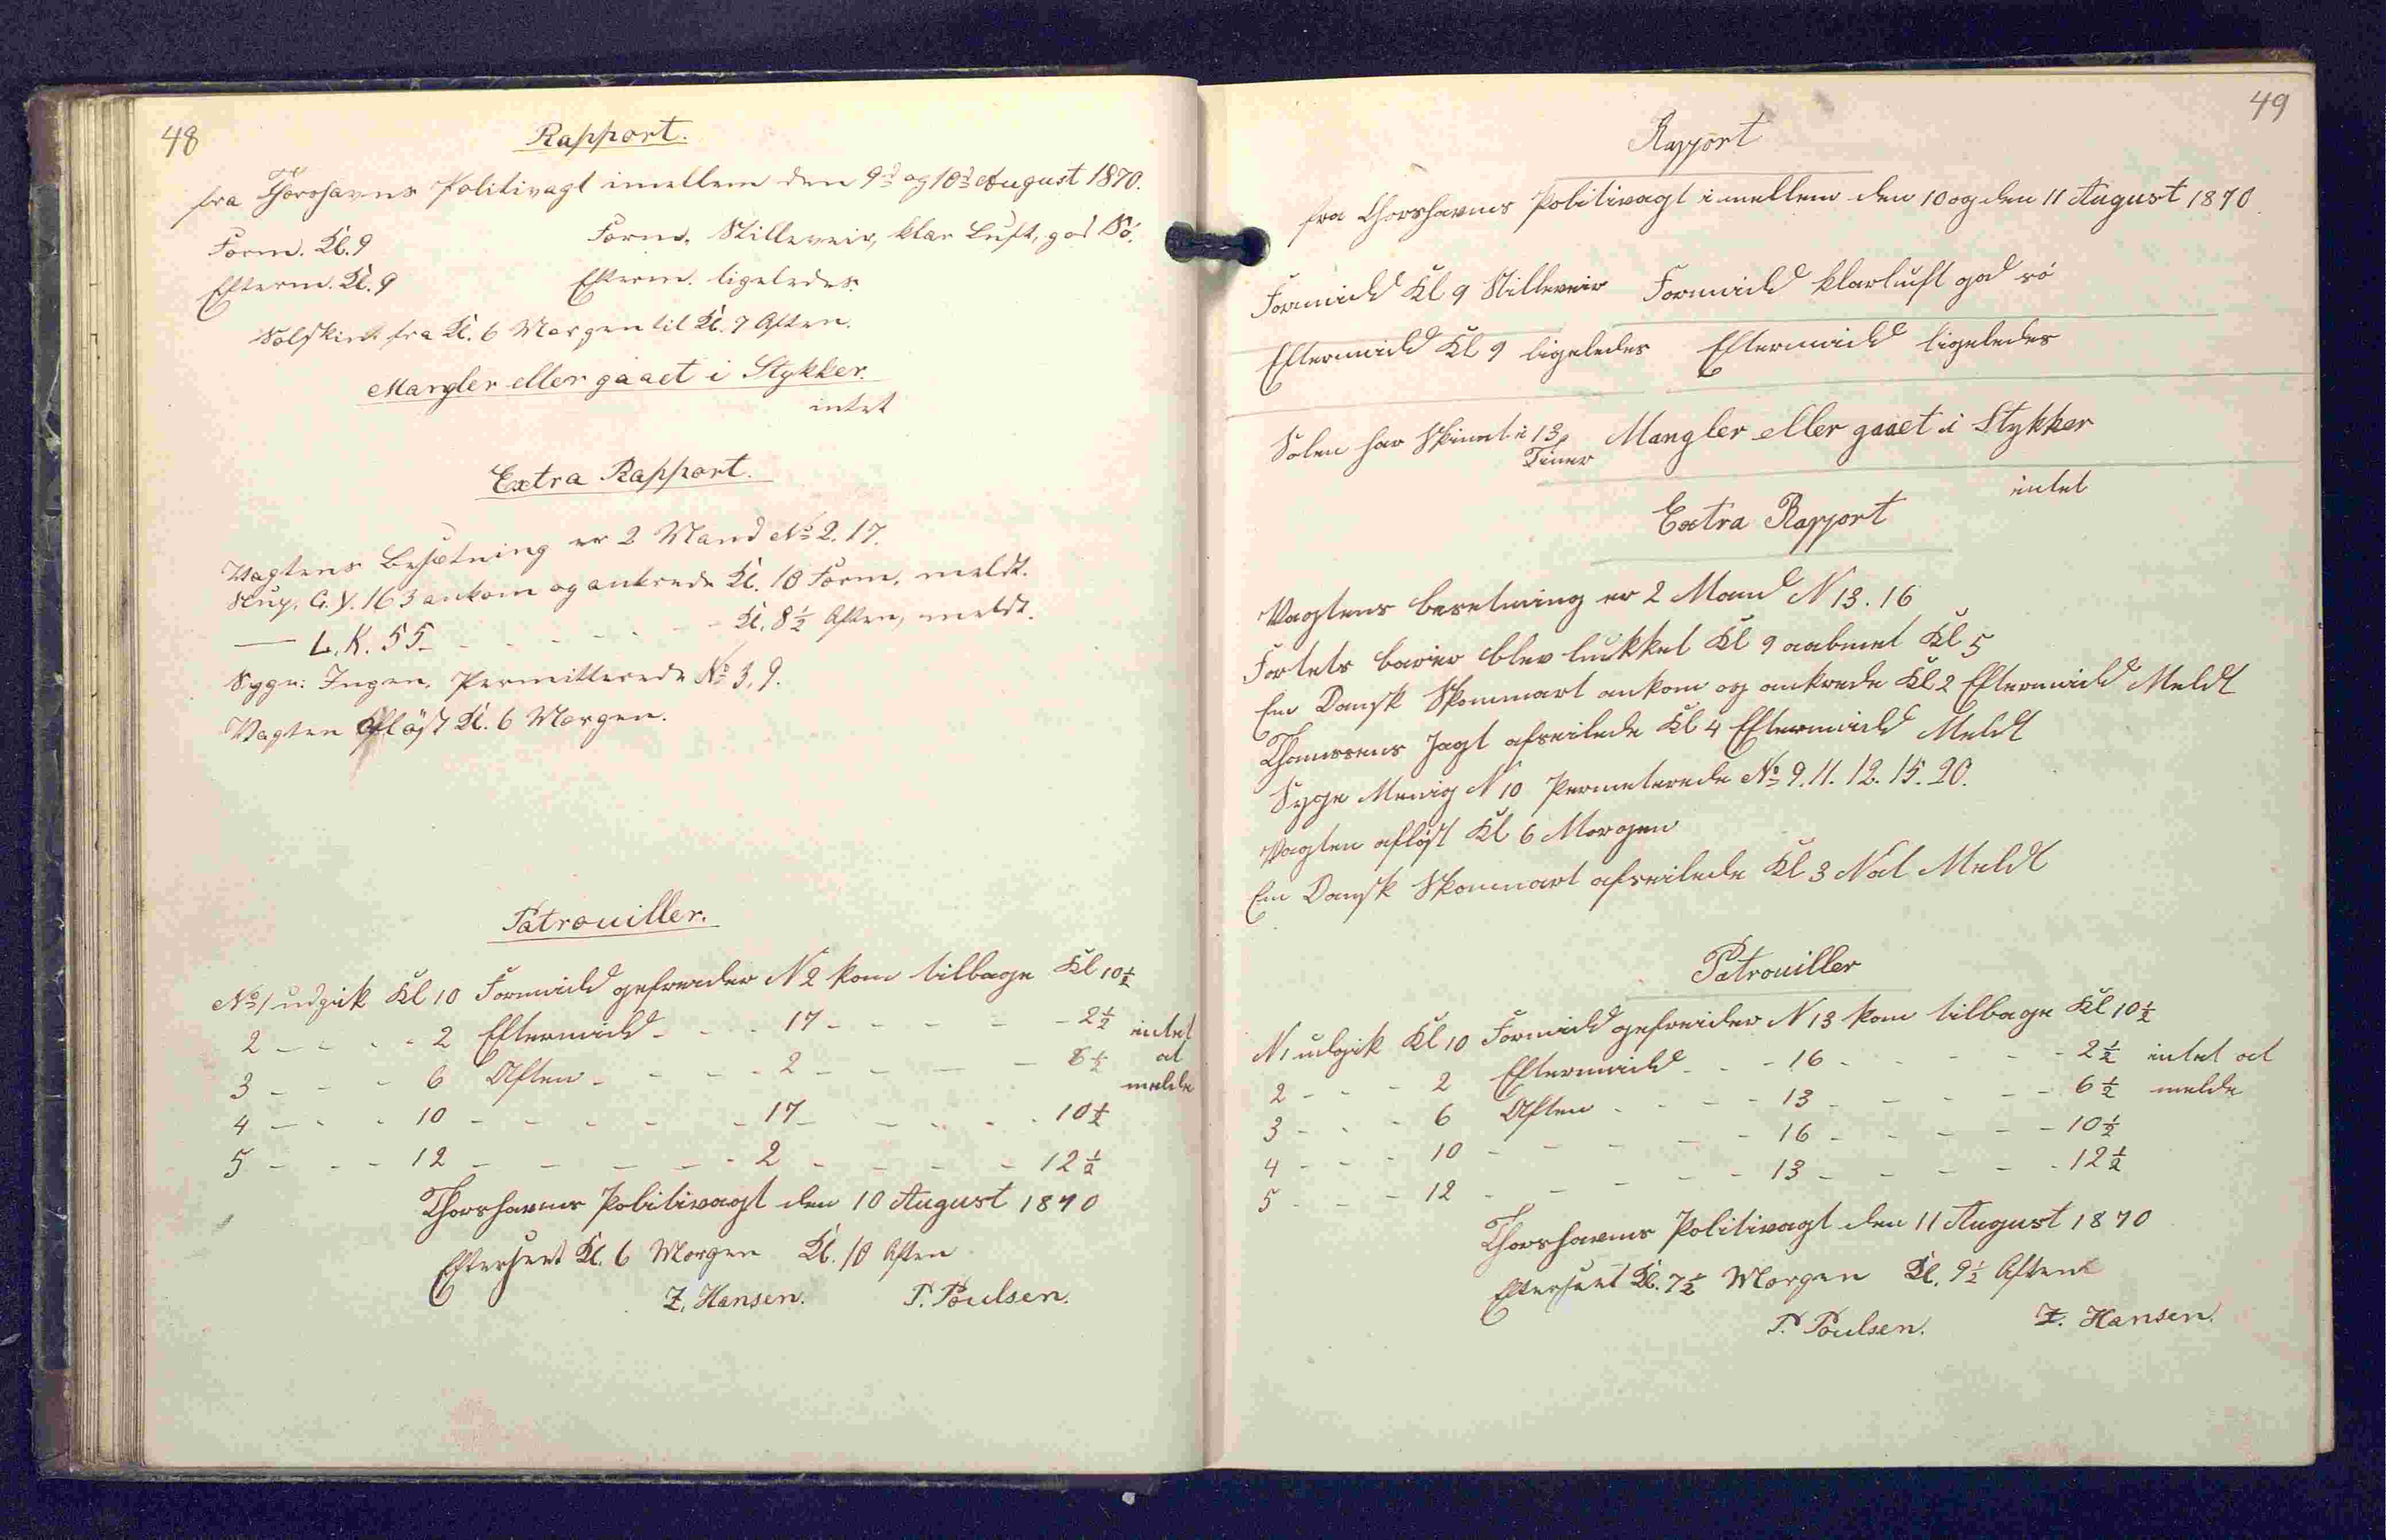 48
Rapport.
fra Thorshavns Politivagt imellem den 9d og 10d August 1870.
Form. Kl. 9 Form. Stilleveir, klar Luft, god Sö.
Efterm. Kl. 9 Efterm. ligeledes.
Solskin fra Kl. 6 Morgen til Kl. 7 Aften.
Mangler eller gaaet i Stykker.
intet
Extra Rapport.
Vagtens Besætning er 2 Mand No 2. 17.
Slup. G. Y. 163 ankom og ankrede Kl. 10 Form. meldt.
— L. K. 55 - - - - - Kl. 8½ Aften, meldt.
Syge: Ingen. Permitterede No 3, 9.
Vagten afløst Kl. 6 Morgen.
Patrouiller.
No 1 udgik Kl 10 Formidd gefreider N 2 kom tilbage Kl 10½
2 - - - 2 Eftermidd - - - 17 - - - - 2½ intet
3 - - - 6 Aften - - - - 2 - - - - 6½ at
melde
4 - - - 10 - - - - - 17 - - - - 10½
5 - - - 12 - - - - - 2 - - - - 12½
Thorshavns Politivagt den 10 August 1870
Efterseet Kl. 6 Morgen Kl. 10 Aften
Z. Hansen. P. Poulsen.
49
Rapport
fra Thorshavns Politivagt i mellem den 10 og den 11 August 1870
Formidd Kl 9 Stilleveir Formidd klarluft god sö
Eftermidd Kl 9 ligeledes Eftermidd ligeledes
Solen har Skinnet i 13 Mangler eller gaaet i Stykker
Timer
intet
Extra Rapport
Vagtens besetning er 2 Mand N 13. 16
Fortets barier blev lukket Kl 9 aabnet Kl 5
En Dansk Skonnart ankom og ankrede Kl 2 Eftermidd Meldt
Thomsens Jagt afseilede Kl 4 Eftermidd Meldt
Syge Menig N 10 Permeterede No 9. 11. 12. 15. 20.
Vagten afløst Kl 6 Morgen
En Dansk Skonnart afseilede Kl 3 Nat Meldt
Patrouiller
N 1 udgik Kl 10 Formidd gefreider N 13 kom tilbage Kl 10½
2 - - - 2 Eftermidd - - 16 - - - - 2½ intet at
3 - - - 6 Aften - - - - 13 - - - - 6½ melde
4 - - - 10 - - - - - 16 - - - - 10½
5 - - - 12 - - - - - 13 - - - - 12½
Thorshavns Politivagt den 11 August 1870
Efterseet Kl. 7½ Morgen Kl. 9½ Aften
P. Poulsen. Z. Hansen.